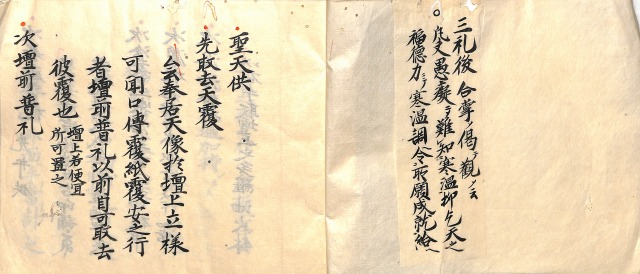 三礼後合掌ノ偈ヲ観ノ云
凡夫愚癡ニノ難知寒温抑乞天之
福徳力ニテ寒温調令所願成就給ヘ
聖天供
先取去天覆
云奉居天像於壇上立様
可聞口傳覆紙覆安之行
者壇前普礼以前自可取去
彼覆也 壇上若便宜
所可置之
次壇前普礼